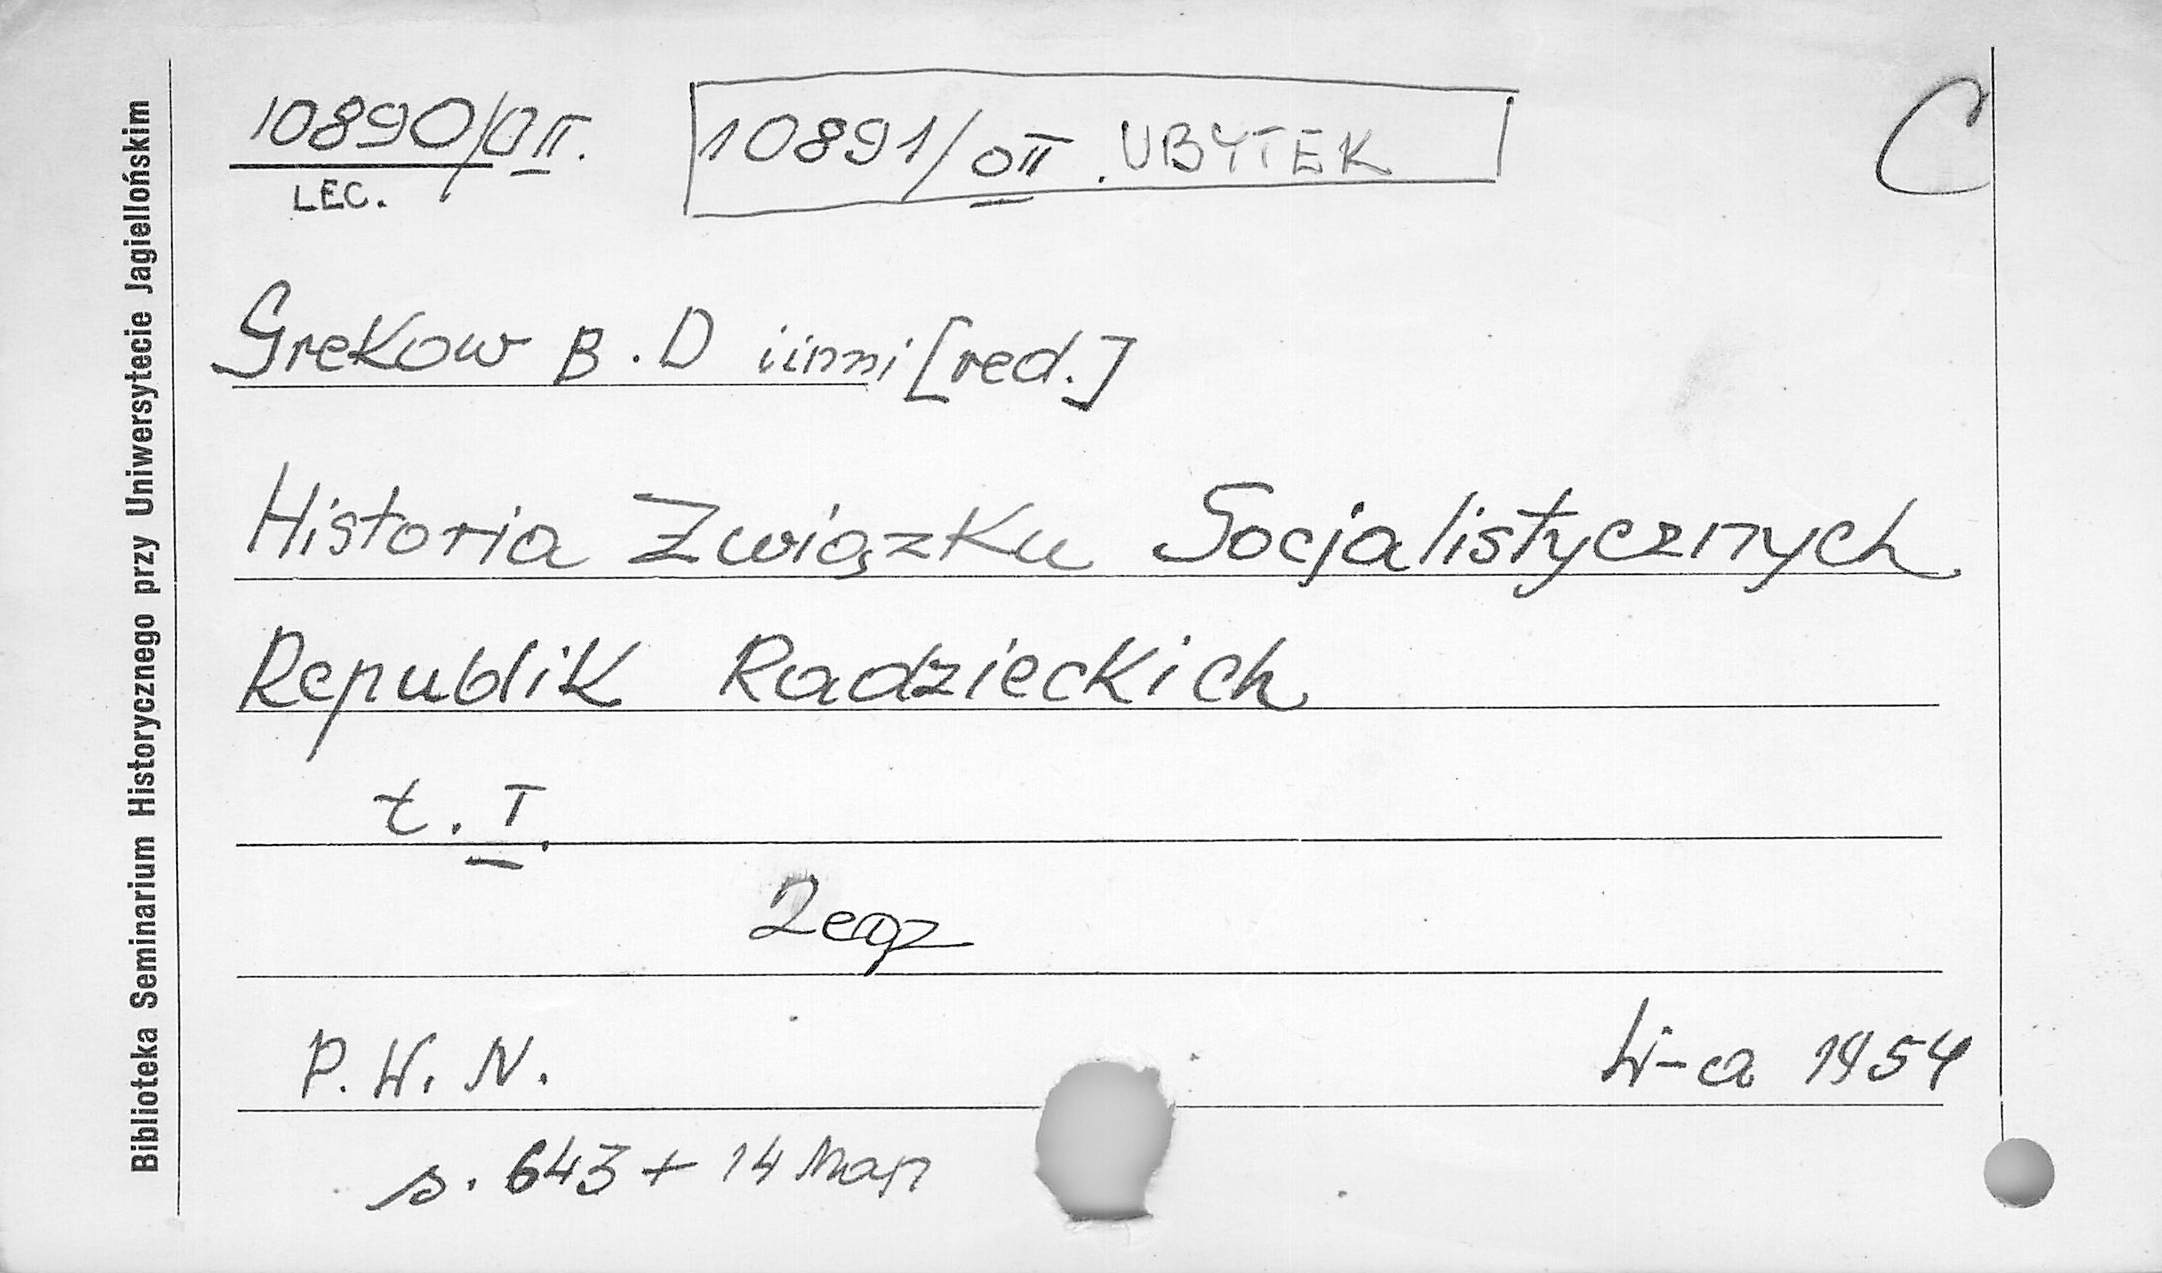 10890/OII. 10891/OII. UBYTEK C
LEC.
Grekow B. D i inni [red.]
Historia Związku Socjalistycznych
Republik Radzieckich
t. I.
2 egz
P. W. N. W-a 1954
s. 643 + 14 map
Biblioteka Seminarium Historycznego przy Uniwersytecie Jagiellońskim